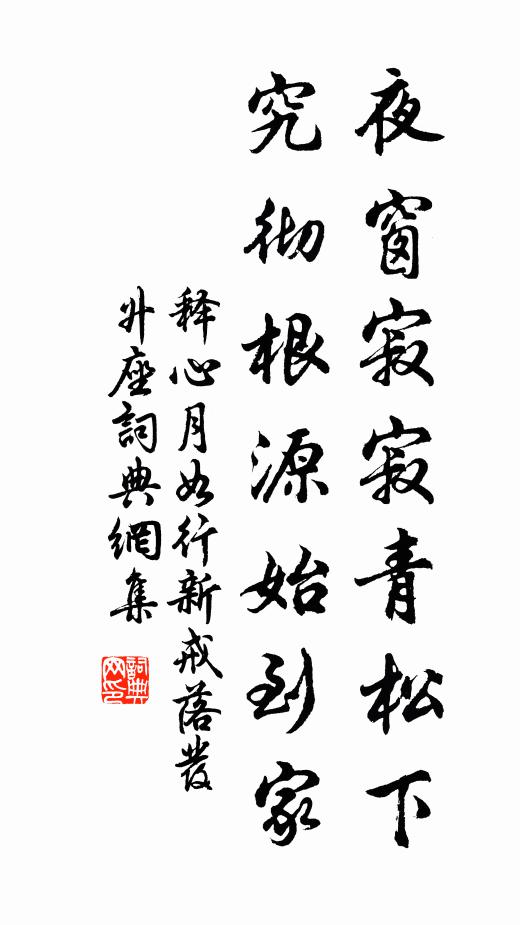 夜窗寂寂青松下
究彻根源始到家
释心月如行新戒落發
升座詞典網集
詞典网印